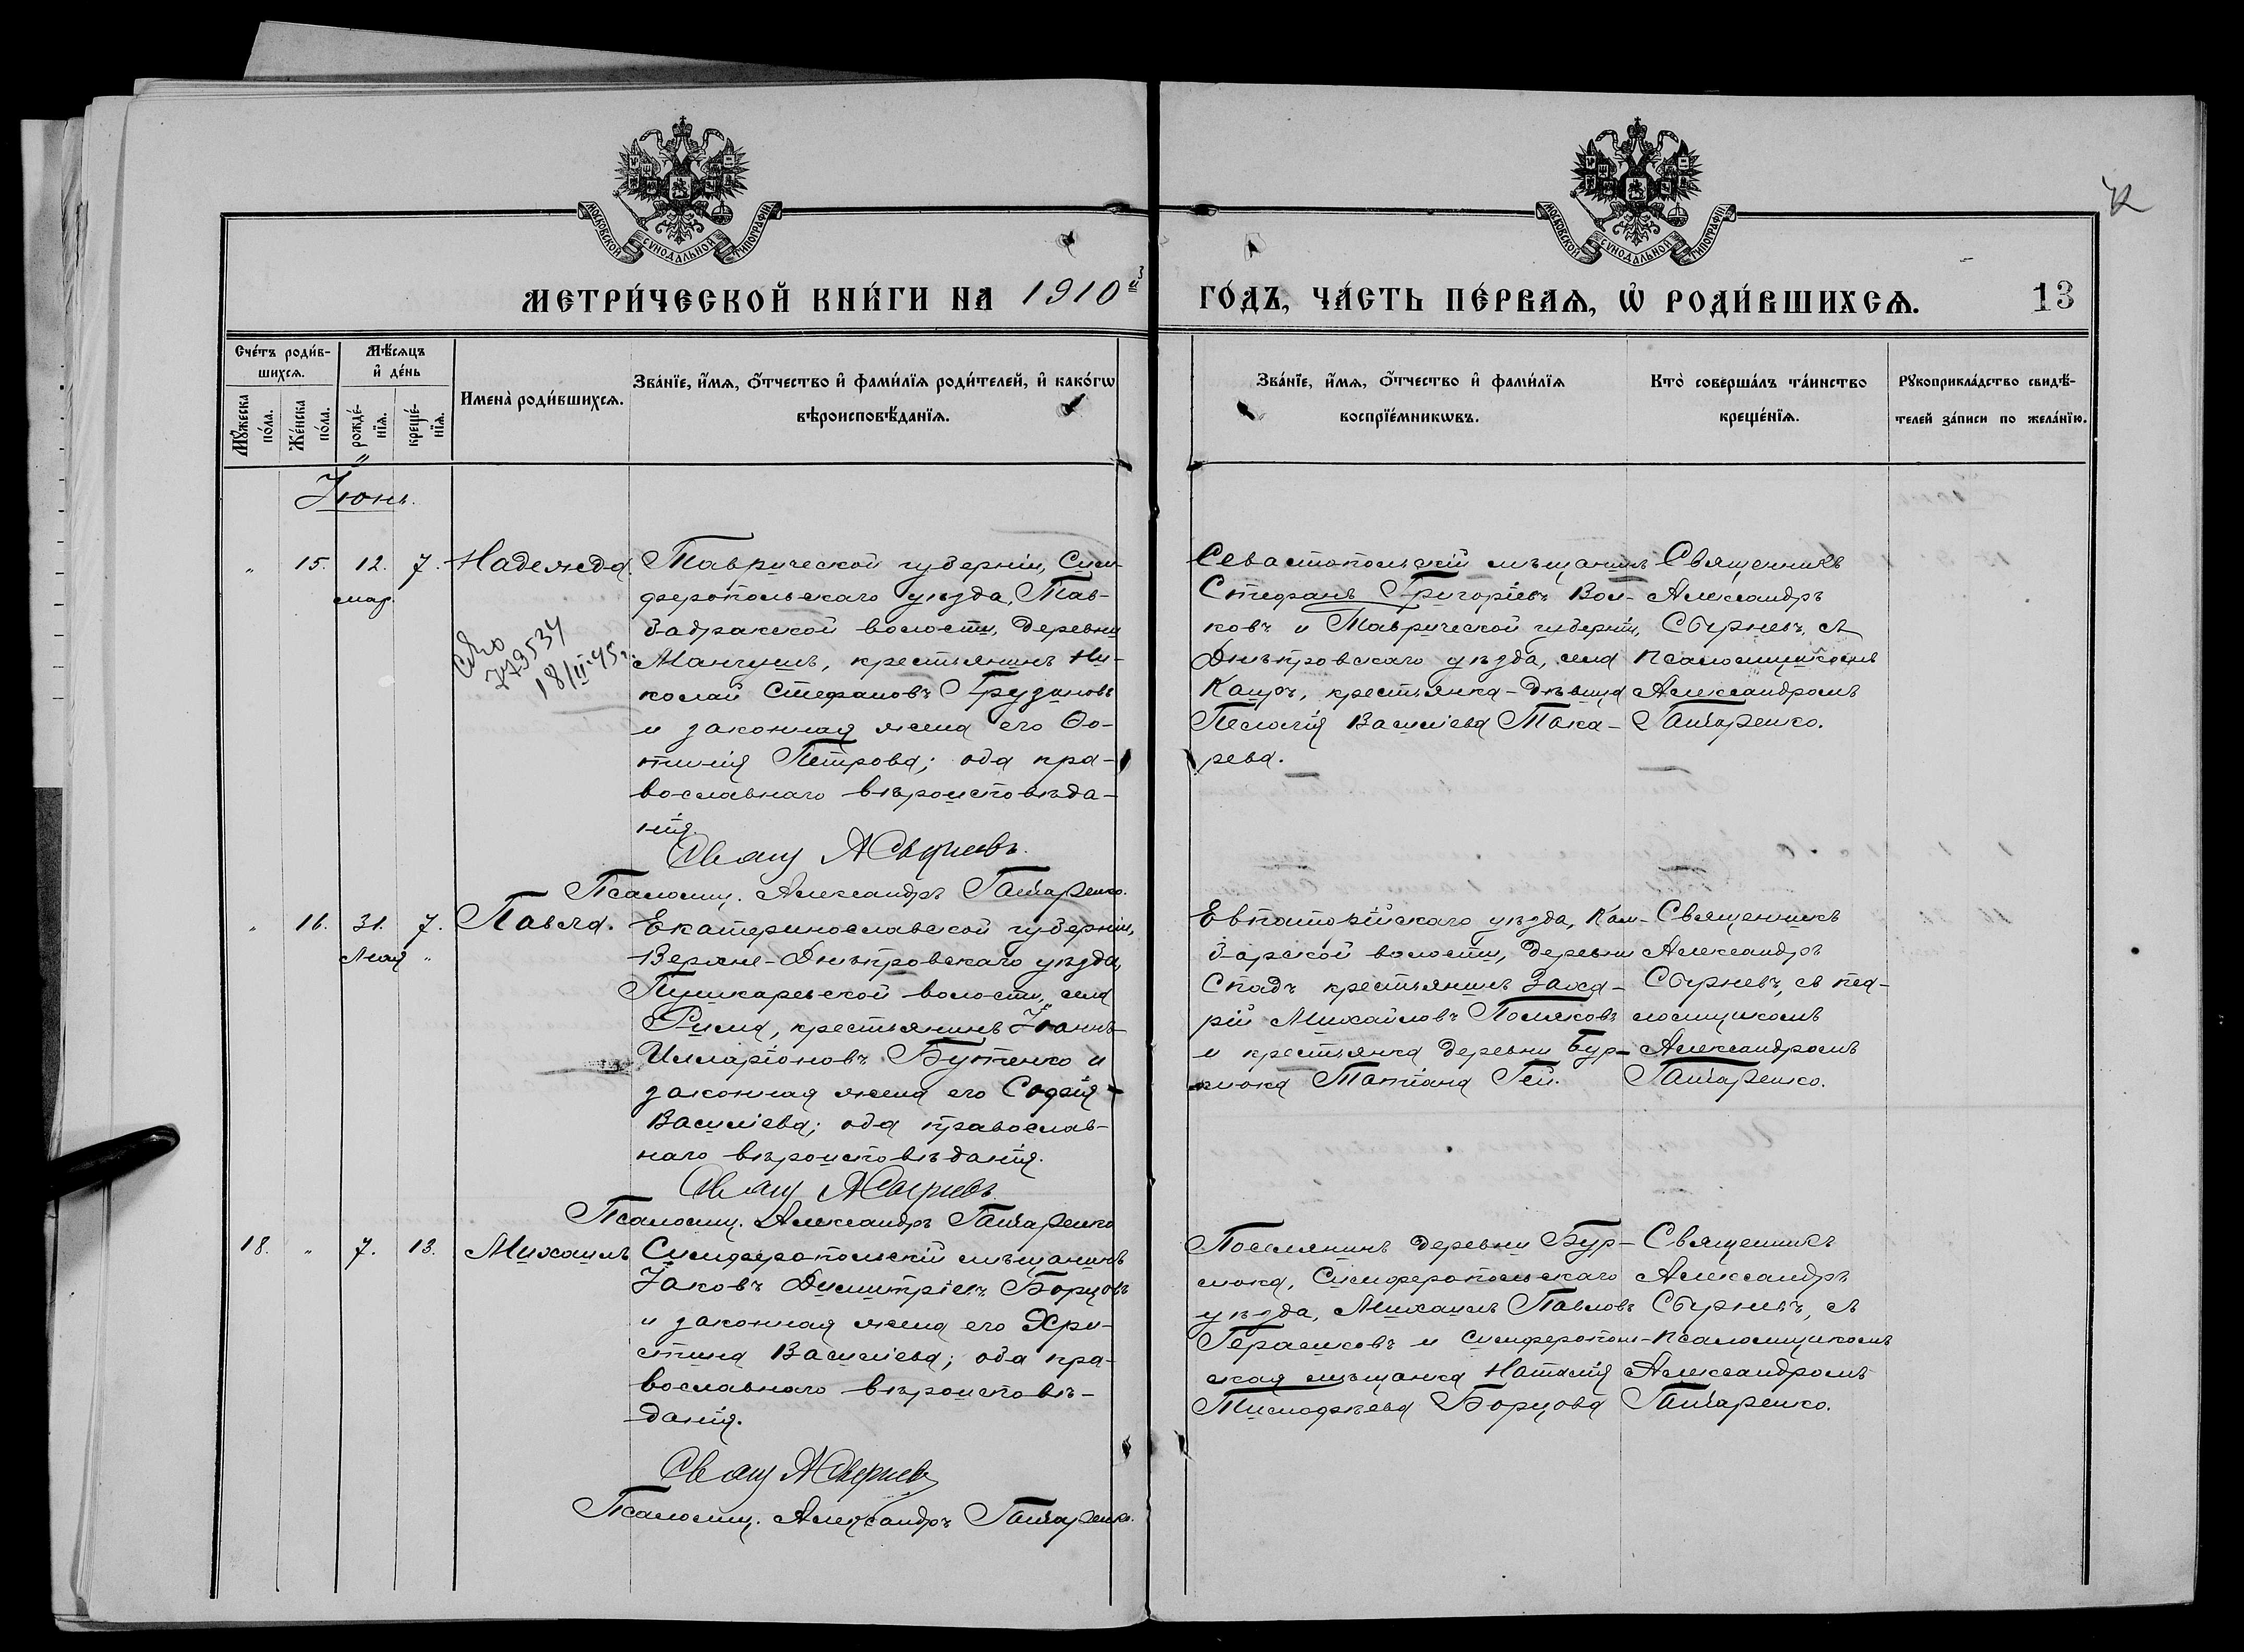 МОСКОВСКОЙ СѴНОДАЛЬНОЙ ТИПОГРАФІИ
МОСКОВСКОЙ СѴНОДАЛЬНОЙ ТИПОГРАФІИ
МЕТРИ́ЧЕСКОЙ КНИ́ГИ НА 1910й
ГО́ДЪ, ЧА́СТЬ ПЕ́РВАѦ, Ѡ҆ РОДИ́ВШИХСѦ.
13
Сче́тъ роди́в-
шихсѧ.
Мѣ́сѧцъ
и҆ де́нь
Мꙋ́жеска
по́ла.
Же́нска
по́ла.
рожде́-
нїѧ.
креще́-
нїѧ.
Имена̀ роди́вшихсѧ.
Зва́нїе, и҆́мѧ, ѻ҆́тчество и҆ фами́лїѧ роди́телей, и҆ како́гѡ
вѣроисповѣ́данїѧ.
Зва́нїе, и҆́мѧ, ѻ҆́тчество и҆ фами́лїѧ
воспрїе́мникѡвъ.
Кто̀ соверша́лъ та́инство
креще́нїѧ.
Рꙋкоприкла́дство свидѣ́-
телей за́писи по жела́нїю.
Іюнь.
" 15. 12. 7. Надежда.
мая
779534
18/II-45г.
Таврической губерніи, Сим-
феропольскаго уѣзда, Тав-
задракской волости, деревни
Мангушъ, крестьянинъ Ни-
колай Стефановъ Грузановъ
и законная жена его Фо-
тинія Петрова; оба пра-
вославнаго вѣроисповѣда-
нія.
Свящ А Сырневъ.
Псаломщ. Александръ Гончаренко.
Севастопольскій мѣщанинъ
Стефанъ Григоріевъ Вол-
ковъ и Таврической губерніи,
Днѣпровскаго уѣзда, села
крестьянка-дѣвица
Пелагія Васильева Тока-
рева.
Священникъ
Александръ
Сырневъ, съ
псаломщикомъ
Александромъ
Гончаренко.
" 16. 31. 7. Павла.
Мая "
Екатеринославской губерніи,
Верхне-Днѣпровскаго уѣзда,
Пушкаревской волости, села
крестьянинъ Іоаннъ
Илларіоновъ Бутенко и
законная жена его Софія
Васильева; оба православ-
наго вѣроисповѣданія.
Свящ А Сырневъ.
Псаломщ. Александръ Гончаренко
Евпаторійскаго уѣзда, Кам-
барской волости, деревни
Спадъ крестьянинъ Заха-
рій Михайловъ Поляковъ
и крестьянка деревни Бур-
люка Татіана Гей.
Священникъ
Александръ
Сырневъ, съ пса-
ломщикомъ
Александромъ
Гончаренко.
18. " 7. 13. Михаилъ
Симферопольскій мѣщанинъ
Іаковъ Димитріевъ Борцовъ
и законная жена его Хри-
стина Васильева; оба пра-
вославнаго вѣроисповѣ-
данія.
Свящ А Сырневъ
Псаломщ. Александръ Гончаренко.
Поселянинъ деревни Бур-
люка, Симферопольскаго
уѣзда, Михаилъ Павловъ
Герасковъ и симферополь-
ская мѣщанка Наталія
Тимофеева Борцова
Священникъ
Александръ
Сырневъ, съ
псаломщикомъ
Александромъ
Гончаренко.